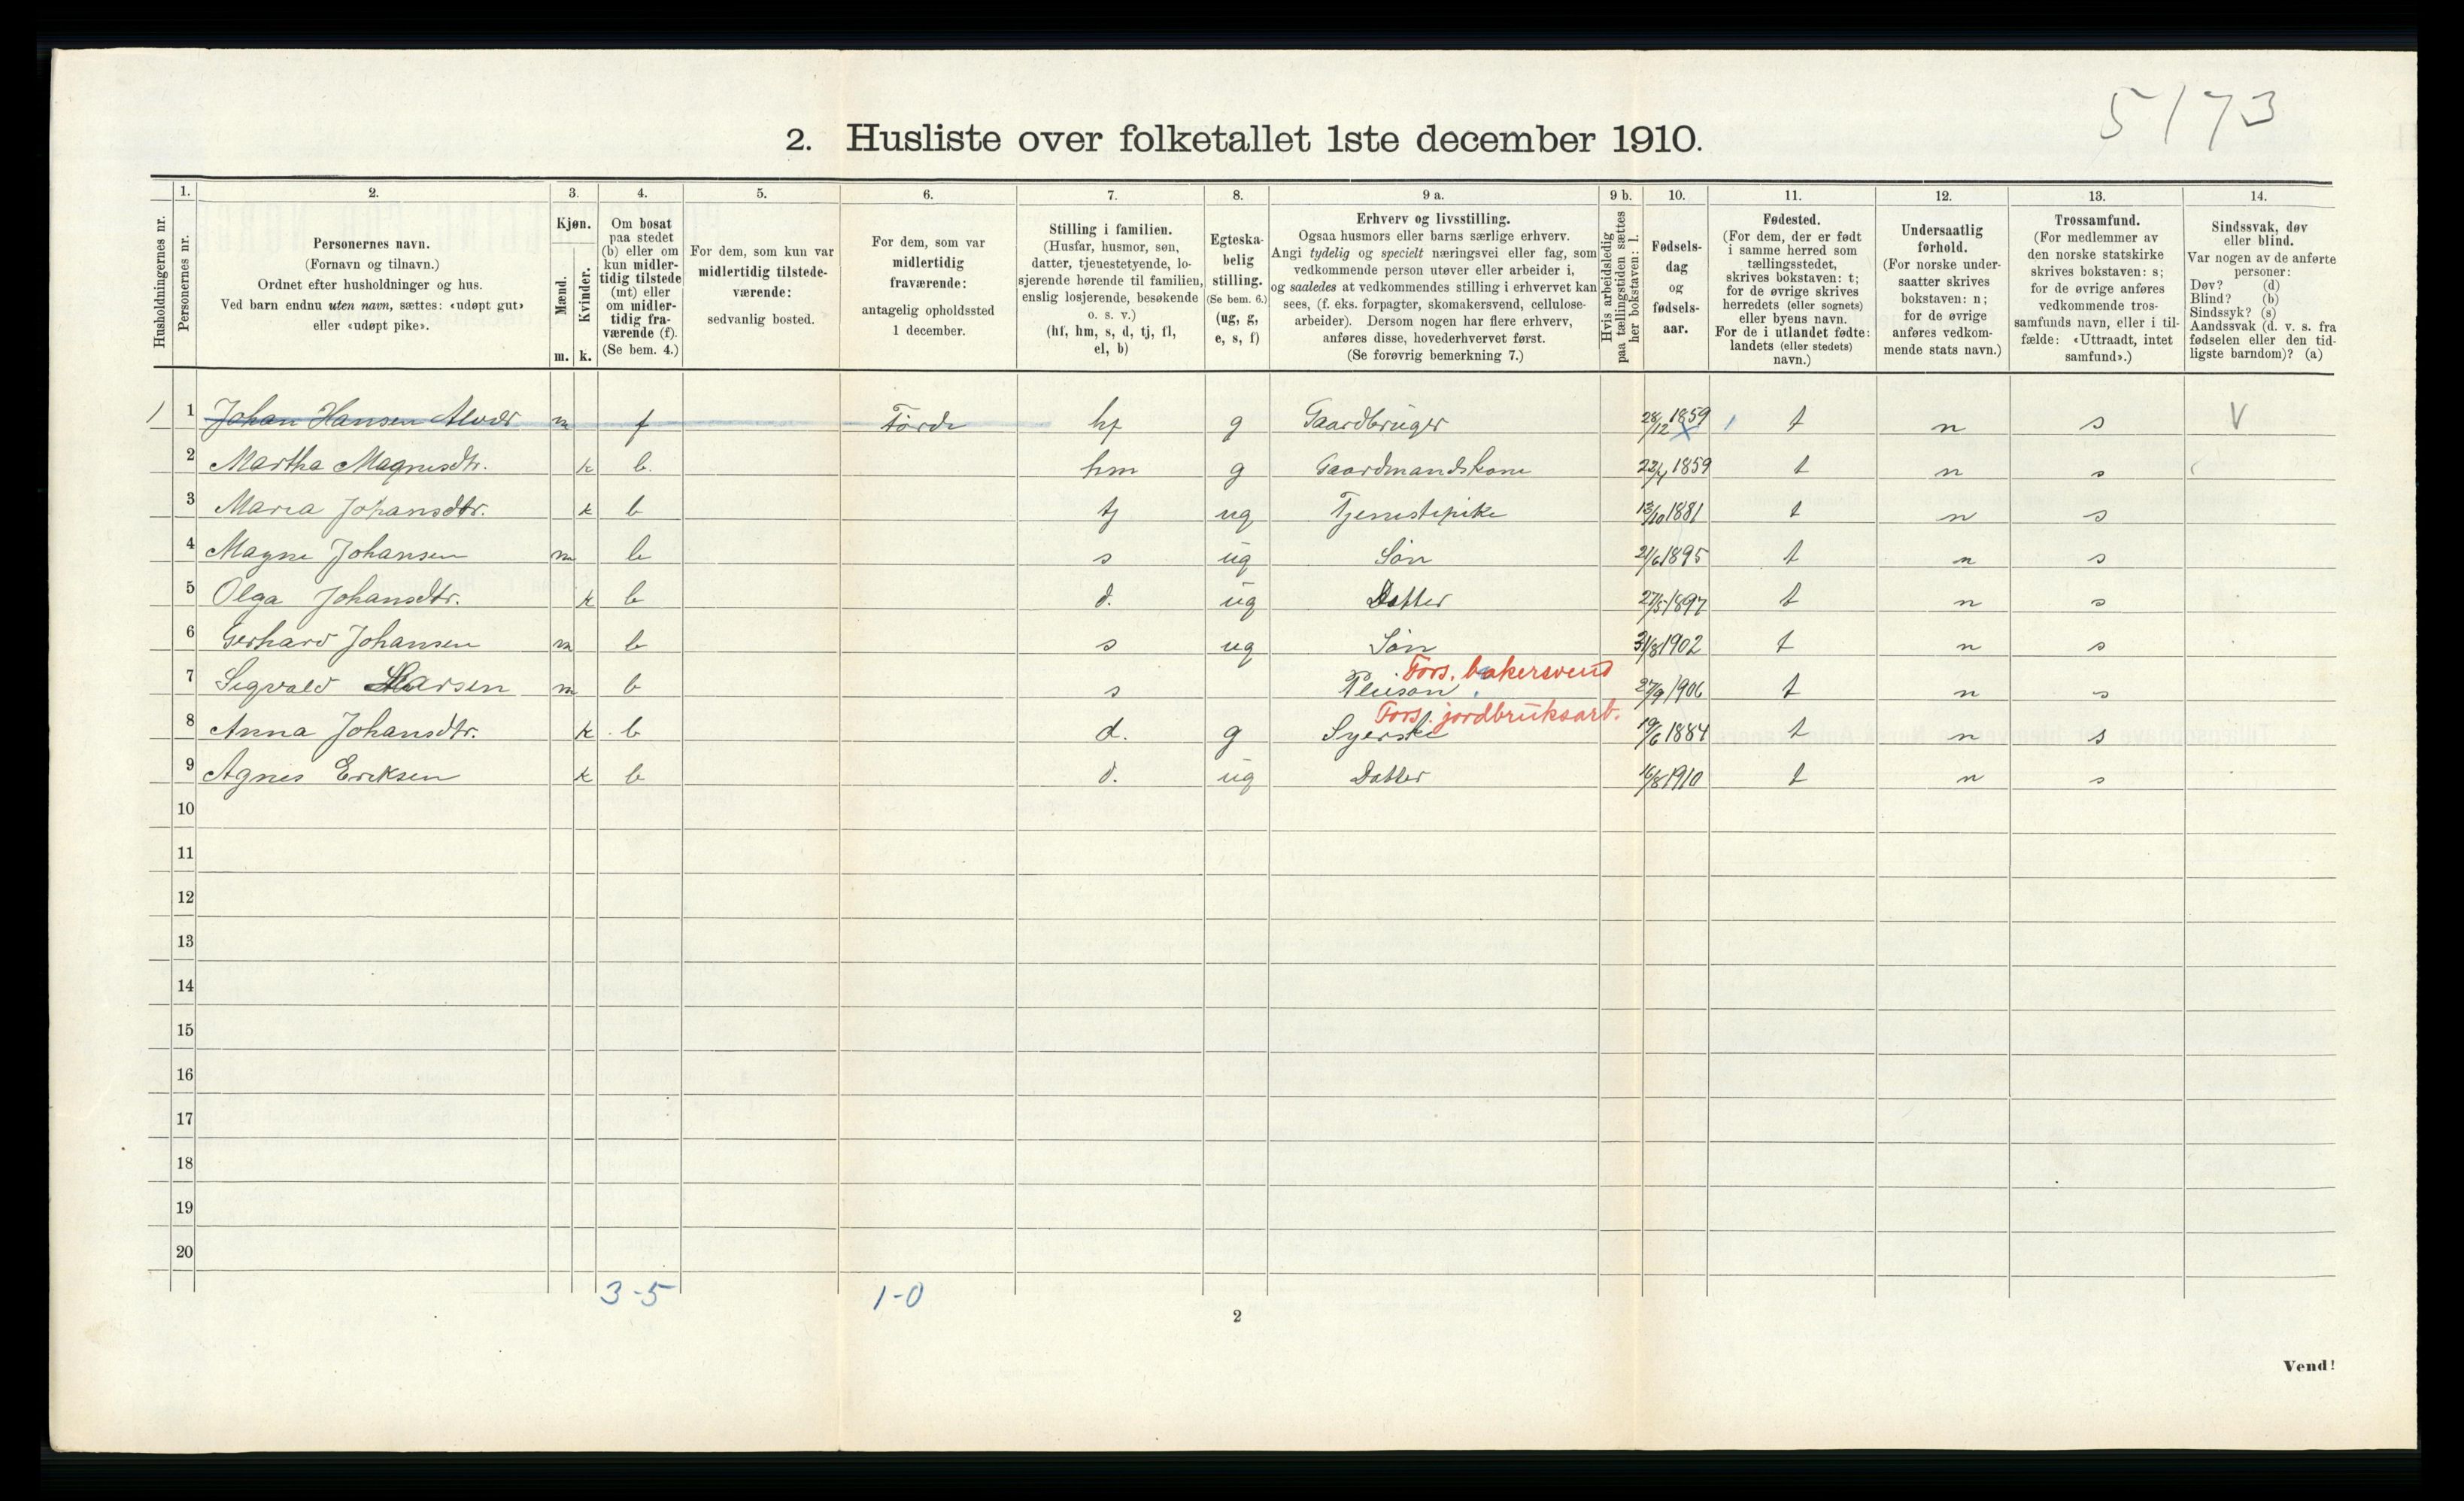 5173
2. Husliste over folketallet 1ste december 1910.
Husholdningernes nr.
1.
Personernes nr.
2.
Personernes navn.
(Fornavn og tilnavn.)
Ordnet efter husholdninger og hus.
Ved barn endnu uten navn, sættes: «udøpt gut»
eller «udøpt pike».
3.
Kjøn.
Mænd.
Kvinder.
m. k.
4.
Om bosat
paa stedet
(b) eller om
kun midler-
tidig tilstede
(mt) eller
om midler-
tidig fra-
værende (f).
(Se bem. 4.)
5.
For dem, som kun var
midlertidig tilstede-
værende:
sedvanlig bosted.
6.
For dem, som var
midlertidig
fraværende:
antagelig opholdssted
1 december.
7.
Stilling i familien.
(Husfar, husmor, søn,
datter, tjenestetyende, lo-
sjerende hørende til familien,
enslig losjerende, besøkende
o. s. v.)
(hf, hm, s, d, tj, fl,
el, b)
8.
Egteska-
belig
stilling.
(Se bem. 6.)
(ug, g,
e, s, f)
9 a.
Erhverv og livsstilling.
Ogsaa husmors eller barns særlige erhverv.
Angi tydelig og specielt næringsvei eller fag, som
vedkommende person utøver eller arbeider i,
og saaledes at vedkommendes stilling i erhvervet kan
sees, (f. eks. forpagter, skomakersvend, cellulose-
arbeider). Dersom nogen har flere erhverv,
anføres disse, hovederhvervet først.
(Se forøvrig bemerkning 7.)
9 b.
Hvis arbeidsledig
paa tællingstiden sættes
her bokstaven: l.
10.
Fødsels-
dag
og
fødsels-
aar.
11.
Fødested.
(For dem, der er født
i samme herred som
tællingsstedet,
skrives bokstaven: t;
for de øvrige skrives
herredets (eller sognets)
eller byens navn.
For de i utlandet fødte:
landets (eller stedets)
navn.)
12.
Undersaatlig
forhold.
(For norske under-
saatter skrives
bokstaven: n;
for de øvrige
anføres vedkom-
mende stats navn.)
13.
Trossamfund.
(For medlemmer av
den norske statskirke
skrives bokstaven: s;
for de øvrige anføres
vedkommende tros-
samfunds navn, eller i til-
fælde: «Uttraadt, intet
samfund».)
14.
Sindssvak, døv
eller blind.
Var nogen av de anførte
personer:
Døv? (d)
Blind? (b)
Sindssyk? (s)
Aandssvak (d. v. s. fra
fødselen eller den tid-
ligste barndom)? (a)
1 1 Johan Hansen m f Førde hf g Gaardbruger 28/12 1859 t n s V
2 Martha Magnesdtr. k b. hm g Gaardmandskone 22/4 1859 t n s
3 Maria Johansdtr. k b tj ug Tjenestepike 13/10 1881 t n s
4 Magne Johansen m b s ug Søn 21/6 1895 t n s
5 Olga Johansdtr. k b d. ug Datter 27/5 1897 t n s
6 Gerhard Johansen m b s ug Søn 31/8 1902 t n s
Fors. bakersvend
7 Sigvald Larsen m b s Pleiesøn 27/9 1906 t n s
Fors. jordbruksarb.
8 Anna Johansdtr. k b d. g Syerske 19/6 1884 t n s
9 Agnes Eriksen k b d. ug Datter 16/8 1910 t n s
10
11
12
13
14
15
16
17
18
19
20
3-5 1-0
2
Vend!